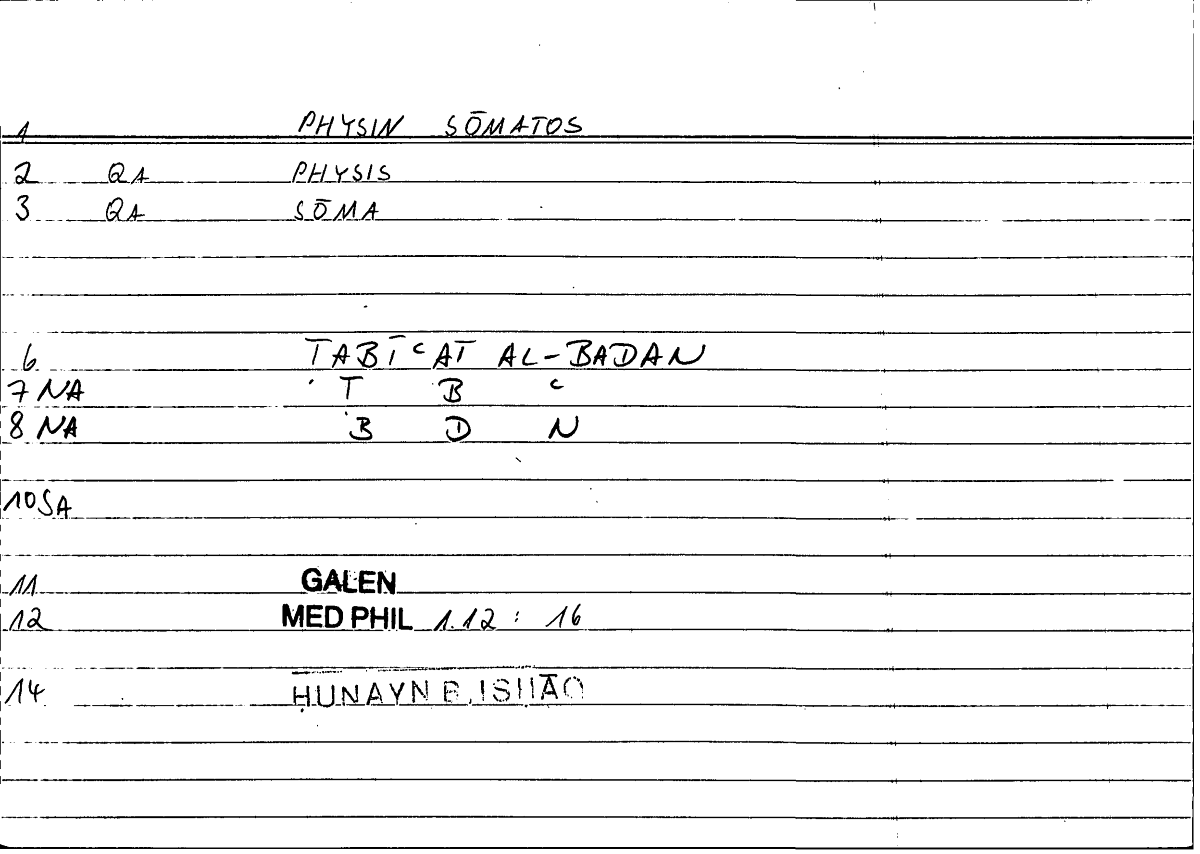 1 PHYSIN SŌMATOS
2 QA PHYSIS
3 QA SŌMA
6 TABĪᶜAT AL-BADAN
7 NA Ṭ B ᶜ
8 NA B D N
10 SA
11 GALEN
12 MED PHIL 1.12 : 16
14 ḤUNAYN B. ISḤĀQ